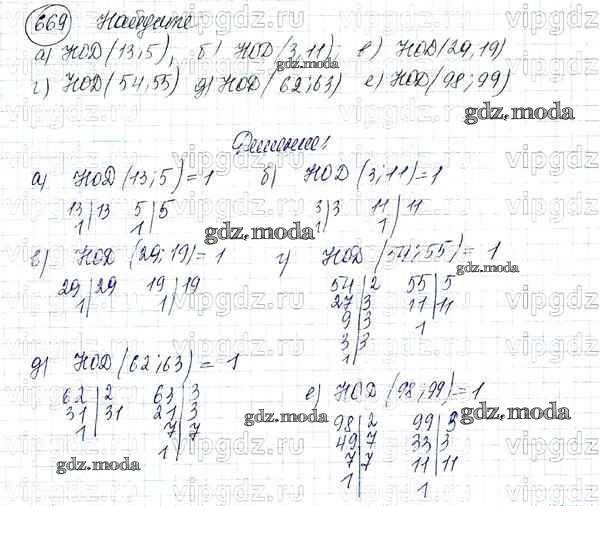 669 Найдите
а) НОД(13;5), б) НОД(3,11); в) НОД(29,19)
г) НОД(54,55) д) НОД(62;63) е) НОД(98;99)
gdz.moda
gdz.moda
Решение:
а) НОД(13;5)=1 б) НОД(3;11)=1
13|13 5|5 3|3 11|11
1| 1| 1| 1|
gdz.moda
в) НОД(29;19)=1 г) НОД(54;55)=1
gdz.moda
29|29 19|19 54|2 55|5
1| 1| 27|3 11|11
9|3 1
3|3
1|
д) НОД(62;63)=1
62|2 63|3 е) НОД(98;99)=1
31|31 21|3 98|2 99|3
1| 7|7 49|7 33|3
1| 7|7 11|11
1| 1
gdz.moda
gdz.moda
gdz.moda
vipgdz.ru